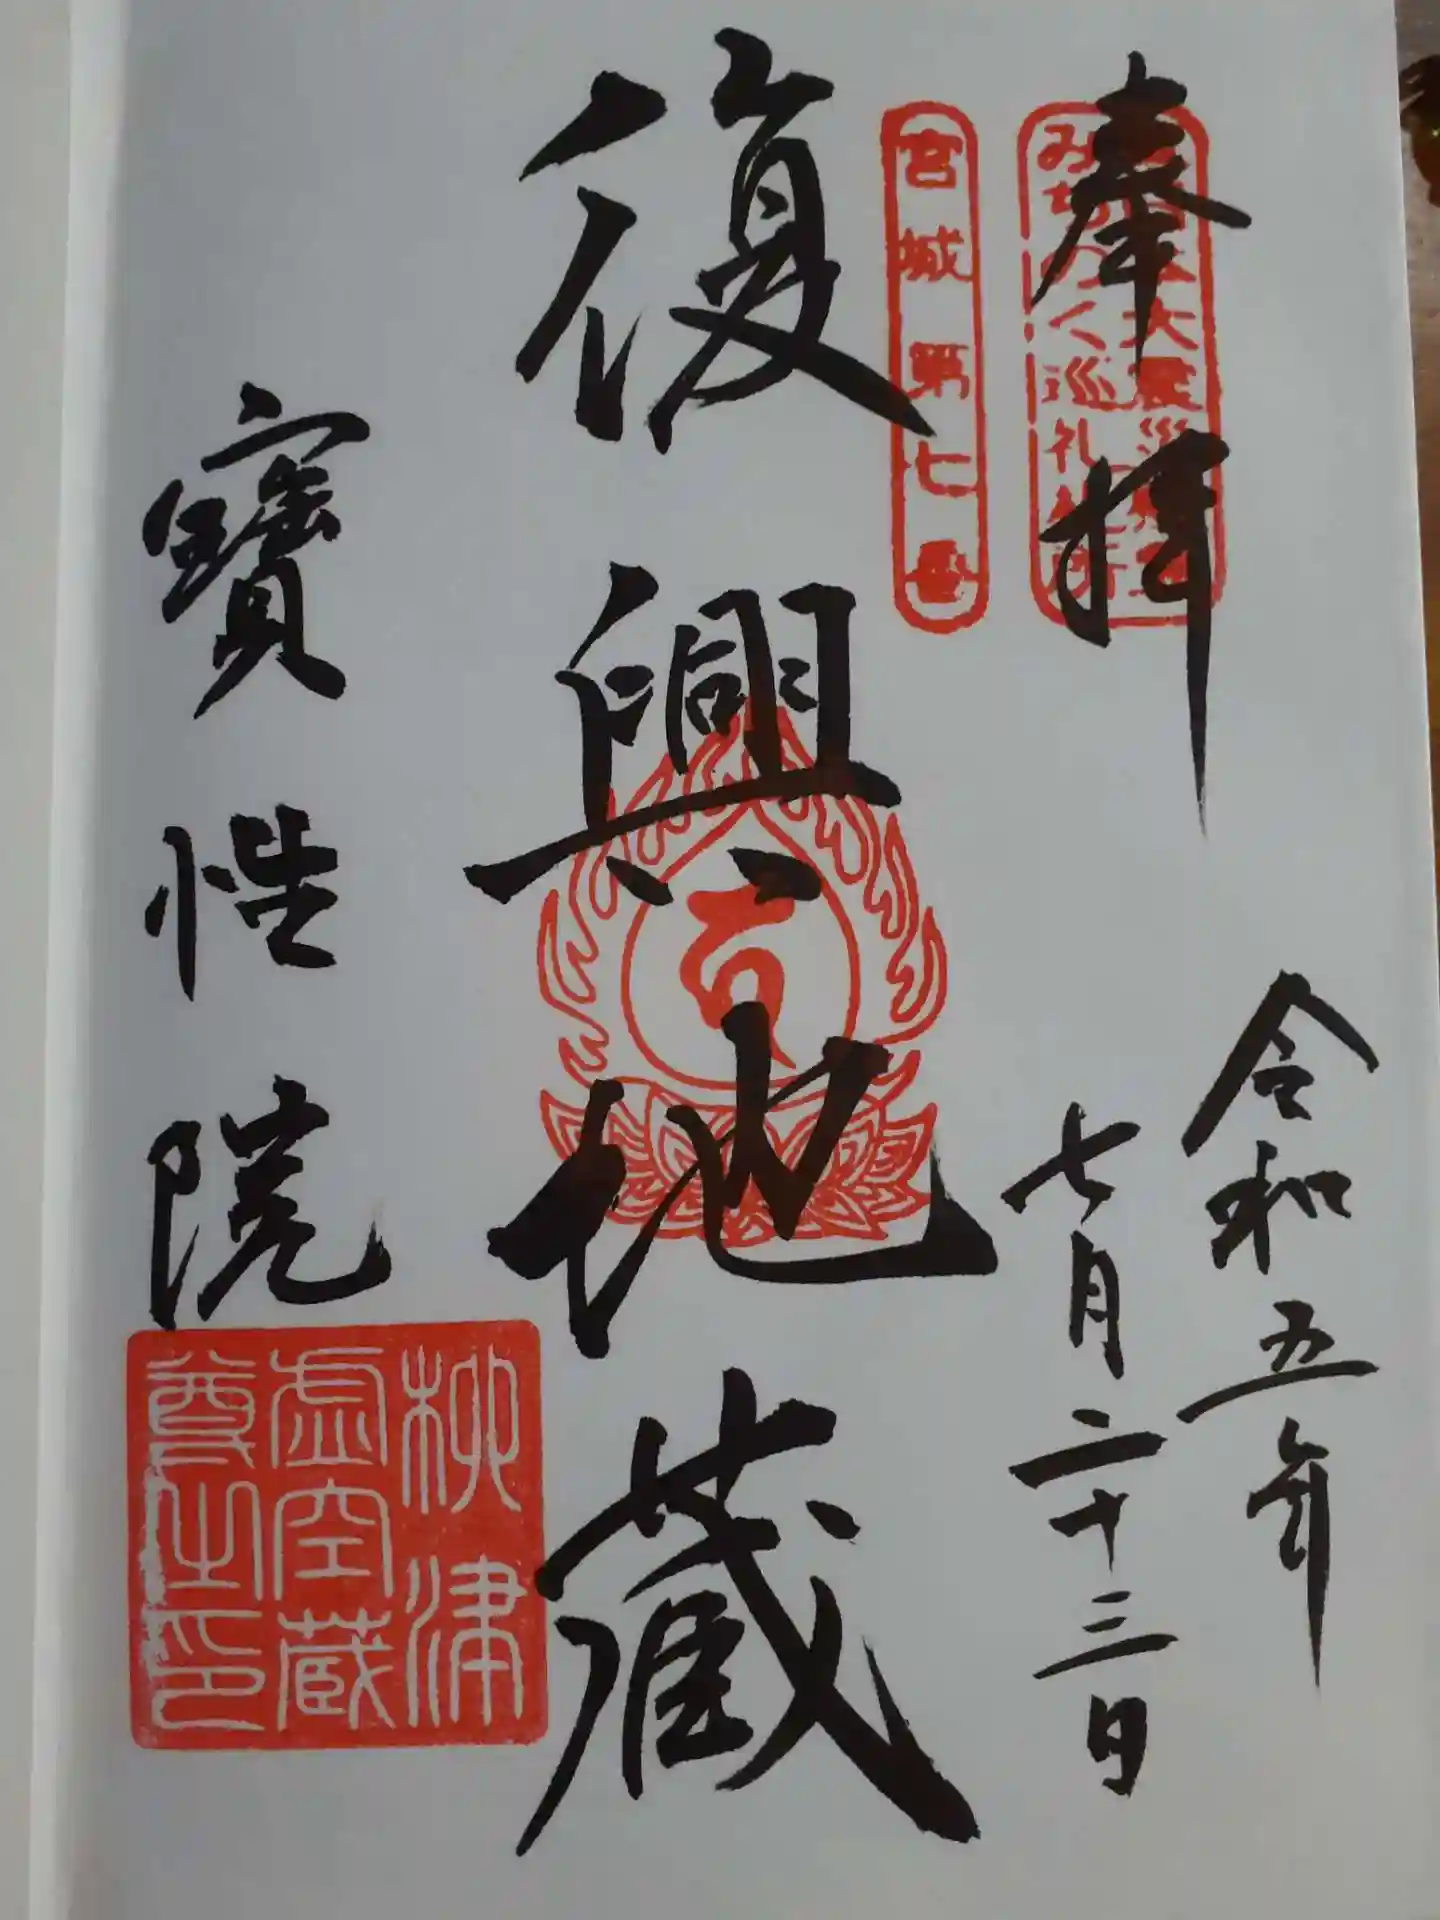 奉拝
大震災
みちのく巡礼札所
令和五年
七月二十三日
宮城第七番
復興地蔵
寳性院
柳津
虚空蔵
尊之印